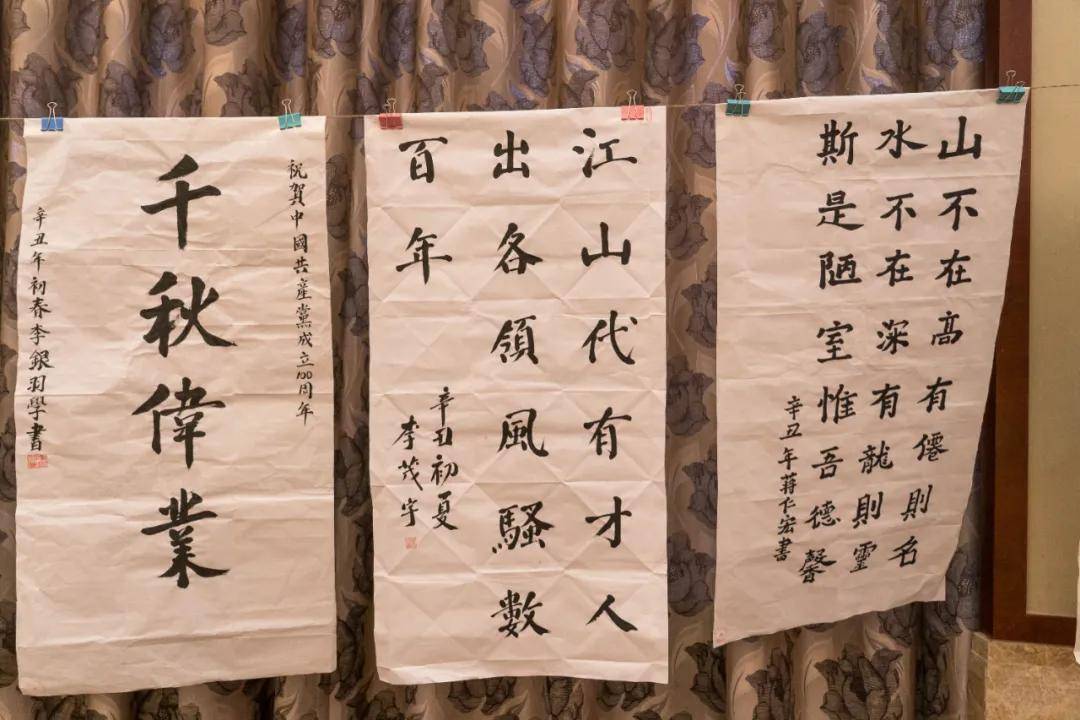 祝賀中國共產黨成立100周年
千秋偉業
辛丑年初春李銀羽學書
江山代有才人
出各領風騷數
百年
辛丑初夏
李茂宇
山不在髙有僊則名
水不在深有龍則靈
斯是陋室惟吾德馨
辛丑年蔣仁宏書